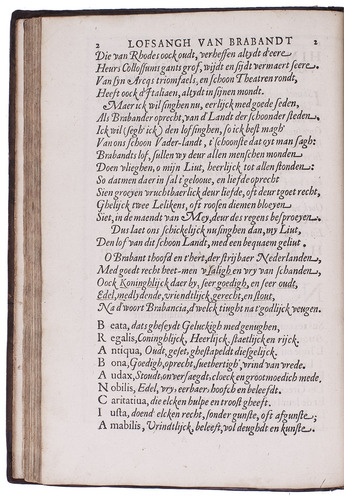 2 LOFSANGH VAN BRABANDT 2
Die van Rhodes oock oudt, verheffen altydt d'eere
Heurs Collossums gants grof, wijdt en sijdt vermaert seere.
Van syn Arcqs triomfaels, en schoon Theatren rondt,
Heeft oock d'Italiaen, altydt in sijnen mondt.
Maer ick wil singhen nu, eerlijck med goede seden,
Als Brabander oprecht, van d'Landt der schoonder steden.
Ick wil (segh' ick) den lof singhen, so ick best magh'
Van ons schoon Vader-landt, t'schoonste dat oyt man sagh:
Brabandts lof, sullen wy deur allen menschen monden
Doen vlieghen, o mijn Liut, heerlijck tot allen stonden:
So datmen daer in sal t'gehoue, en liefde oprecht
Sien groeyen vruchtbaerlick deur liefde, oft deur tgoet recht,
Ghelijck twee Lelikens, oft roosen diemen bloeyen
Siet, in de maendt van Mey, deur des regens besproeyen.
Dus laet ons schickelijck nu singhen dan, my Liut,
Den lof van dit schoon Landt, med een bequaem geliut.
O Brabant thoofd en t'hert, der strijbaer Nederlanden,
Med goedt recht heet-men v saligh en vry van schanden,
Oock Koninghlijck daer by, seer goedigh, en seer oudt,
Edel, medlydende, vriendtlijck, gerecht, en stout,
Na d'woort Brabancia, d'welck tiught na t'godlijck veugen.
Beata, dats gheseydt Geluckigh med genughen,
Regalis, Coninghlijck, Heerlijck, staetlijck en rijck.
Antiqua, Oudt, geset, ghestapeldt diesgelijck.
Bona, Goedigh, oprecht, suethertigh, vrind van vrede.
Audax, Stoudt, onversaegdt, cloeck en grootmoedich mede,
Nobilis, Edel, vry, eerbaer, hoofsch en beleefdt.
Caritatiua, die elcken hulpe en troost gheeft.
Iusta, doend elcken recht, sonder gunste, oft afgunste;
Amabilis, Vrindtlijck, beleeft, vol deughdt en kunste.